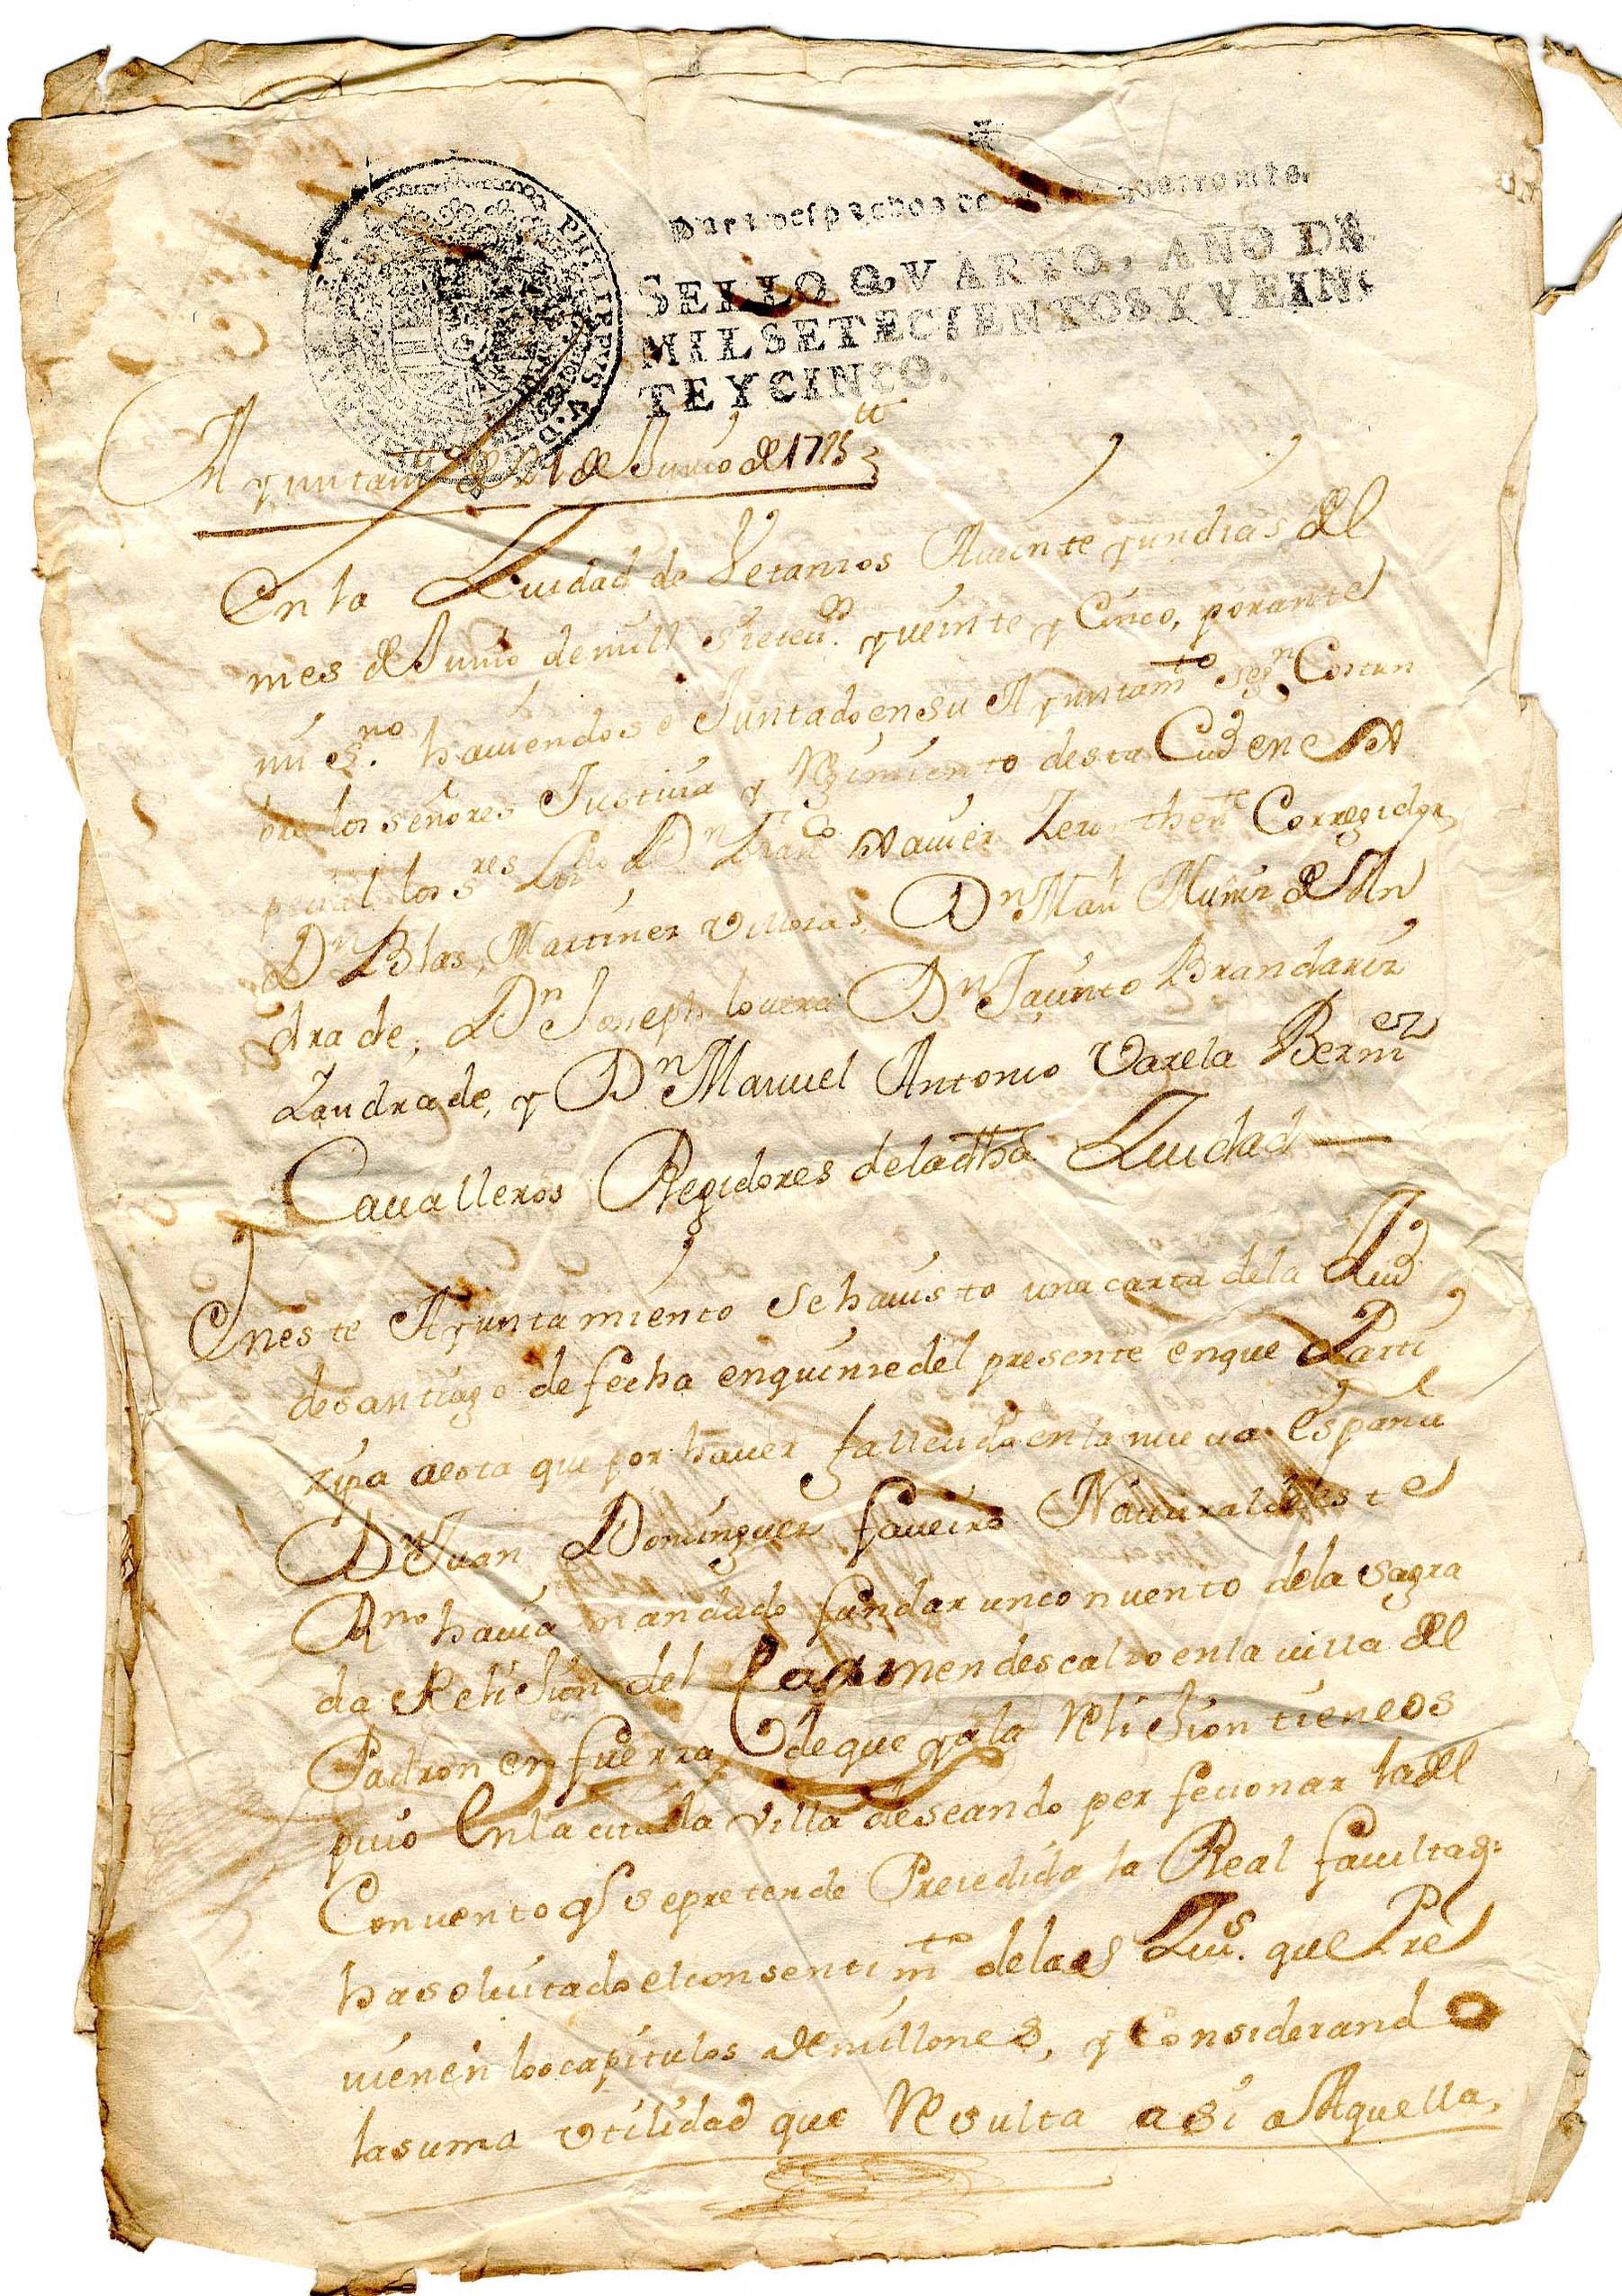 PHILIPPVS V D
Para despachos de
SELLO QVARTO, AÑO DE
MIL SETECIENTOS Y VEIN
TE Y CINCO.
Ayuntamto de 21 de Junio de 1725
En la Ciudad de Vetanzos A veinte y un dias del
mes de Junio de mill sietecos. y veinte y Cinco, por ante
mi esno. haviendose Juntado en su Ayuntamto segn Costun
bre los señores Justicia y Regimiento desta Ciud en es
pecial los sres Lizdo Dn Franco Xavier Zeron thente Corregidor,
Dn Blas Martinez Villozas, Dn Manl Muñiz de An
drade, Dn Joseph lovera Dn Jacinto Brandariz
Zandrade, y Dn Manuel Antonio Varela Bermez
Cavalleros Regidores de la dtha Ciudad
En este Ayuntamiento se ha visto una carta de la Ciud
de santiago de fecha en quinze del presente en que Parti
zipa a esta que por haver fallecido en la nueva España
Dn Juan Dominguez faveiro Natural deste
Rno havia mandado fundar un convento de la sagra
da Relijion del Carmen descalzo en la villa del
Padron en fuerza de que ya la Relijion tiene os
picio En la citada Villa deseando perfecionar la del
Convento qe se pretende Precedida la Real facultad.
ha solicitado el consentimto de las Cius. que Pre
vienen los capitulos de millones, y Considerando
la suma Utilidad que Resulta asi a Aquella,